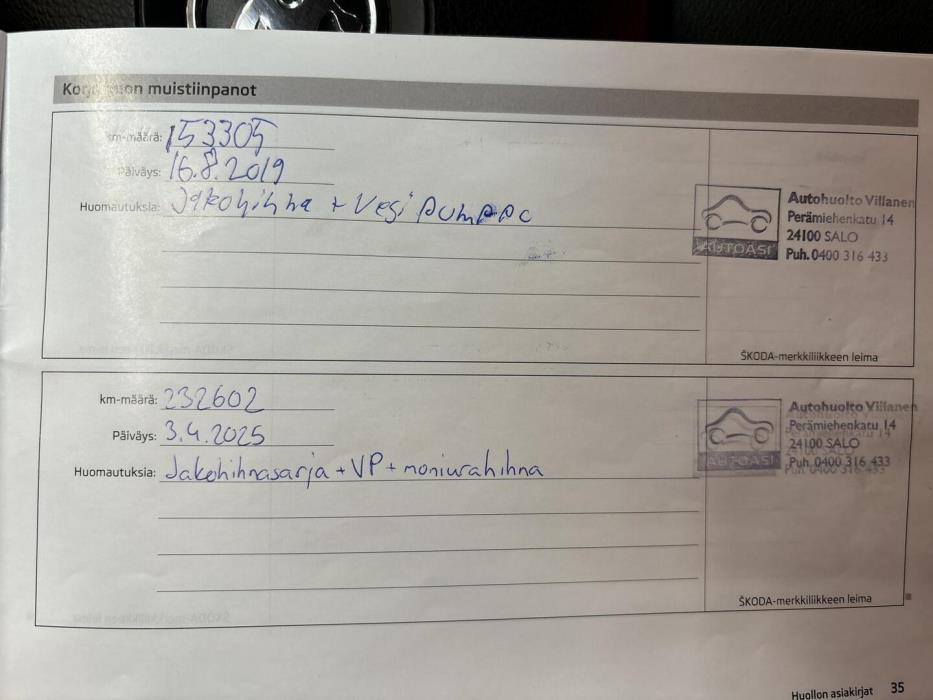 Korjaamon muistiinpanot
km-määrä: 153305
Päiväys: 16.8.2019
Huomautuksia: Jakohihna + Vesi pumppu
AUTOASI
Autohuolto Villanen
Perämiehenkatu 14
24100 SALO
Puh. 0400 316 433
ŠKODA-merkkiliikkeen leima
km-määrä: 232602
Päiväys: 3.4.2025
Huomautuksia: Jakohihnasarja + VP + moniurahihna
AUTOASI
Autohuolto Villanen
Perämiehenkatu 14
24100 SALO
Puh. 0400 316 433
ŠKODA-merkkiliikkeen leima
Huollon asiakirjat 35